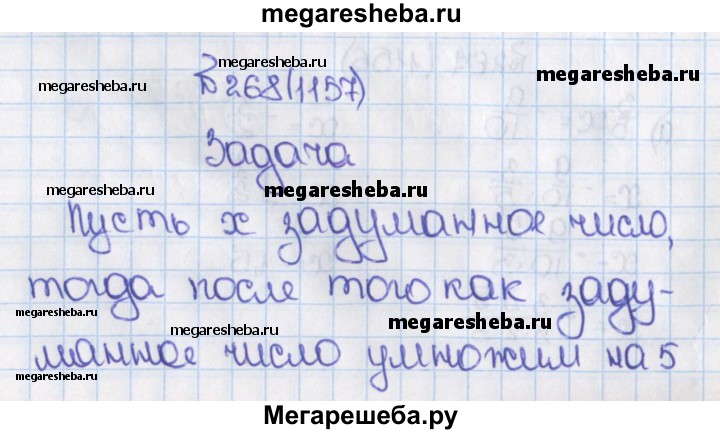 megaresheba.ru
megaresheba.ru
megaresheba.ru
Б 268(1157)
megaresheba.ru
Задача
megaresheba.ru
megaresheba.ru
Пусть x задуманное число,
тогда после того как заду-
megaresheba.ru
megaresheba.ru
megaresheba.ru
манное число умножим на 5
megaresheba.ru
megaresheba.ru
Мегарешеба.ру